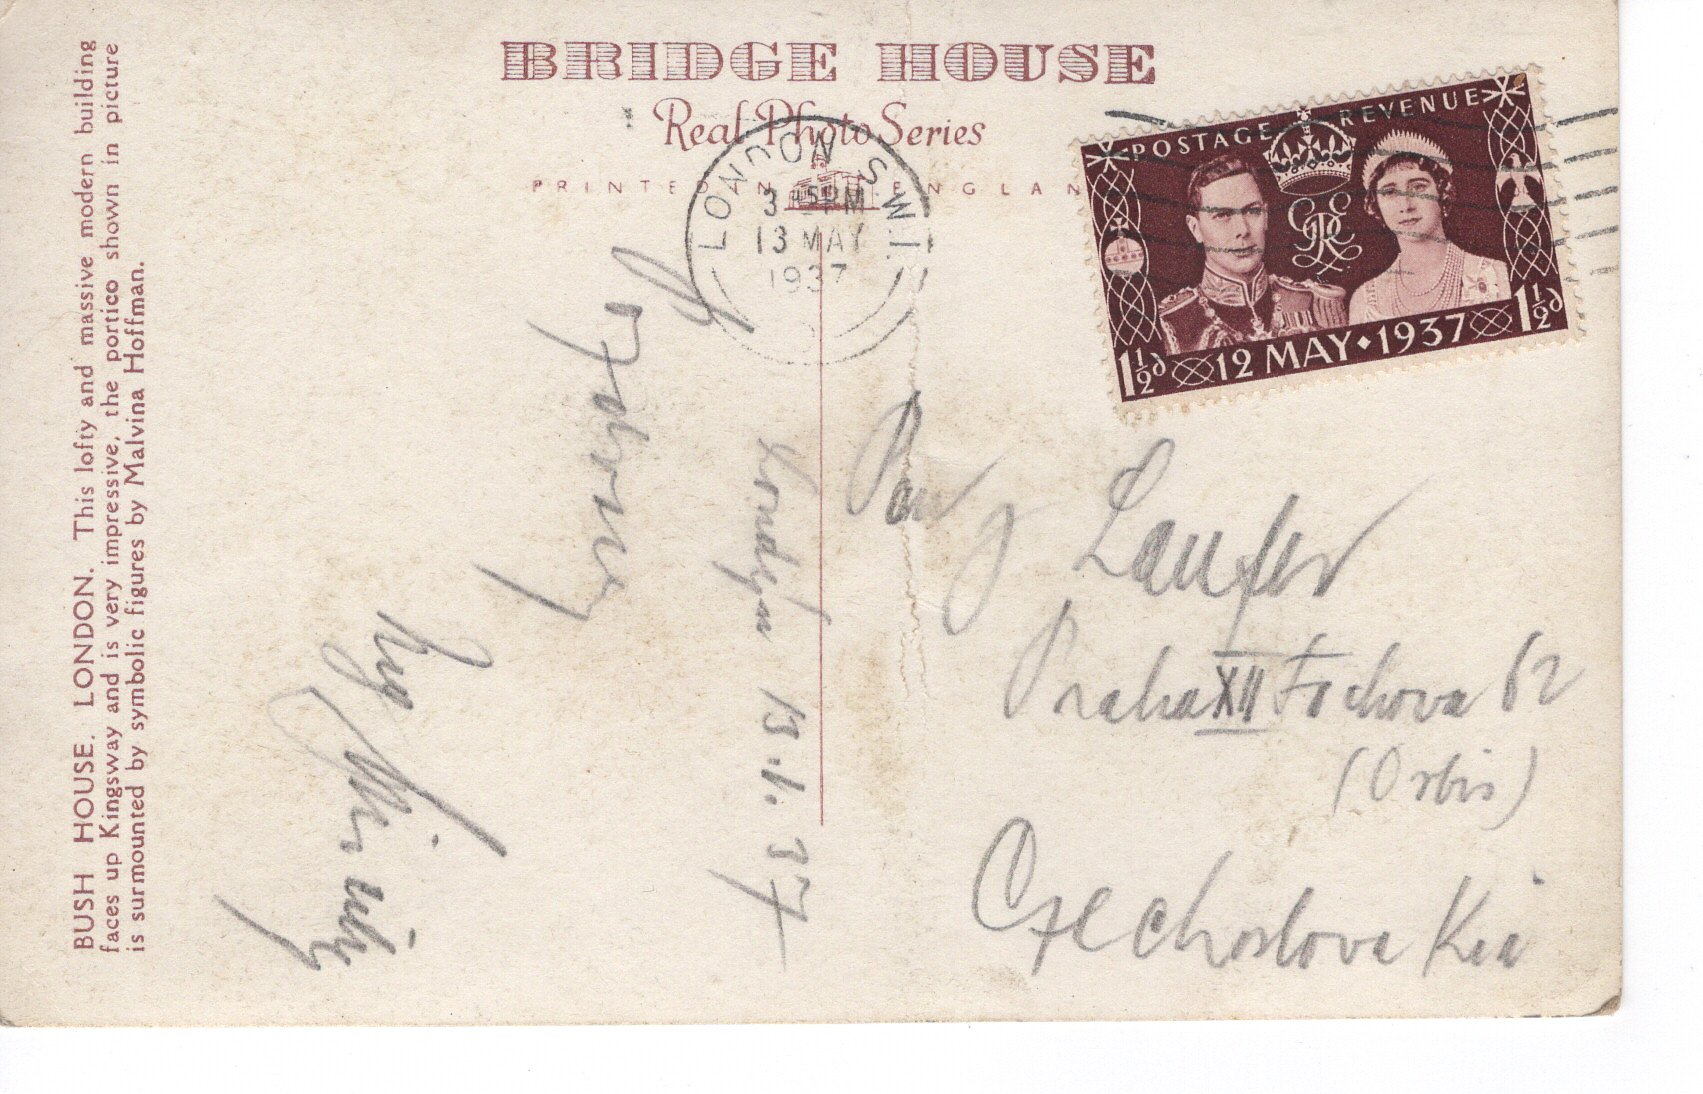 BRIDGE HOUSE
Real Photo Series
PRINTED IN ENGLAND
BUSH HOUSE. LONDON. This lofty and massive modern building
faces up Kingsway and is very impressive, the portico shown in picture
is surmounted by symbolic figures by Malvina Hoffman.
LONDON S.W.1.
3 45 PM
13 MAY
1937
POSTAGE REVENUE
GRE
1½d 12 MAY · 1937 1½d
Londýn 13. 37
Pan J
Laufer
Praha XII Fochova 62
(Orbis)
Czechoslovakia